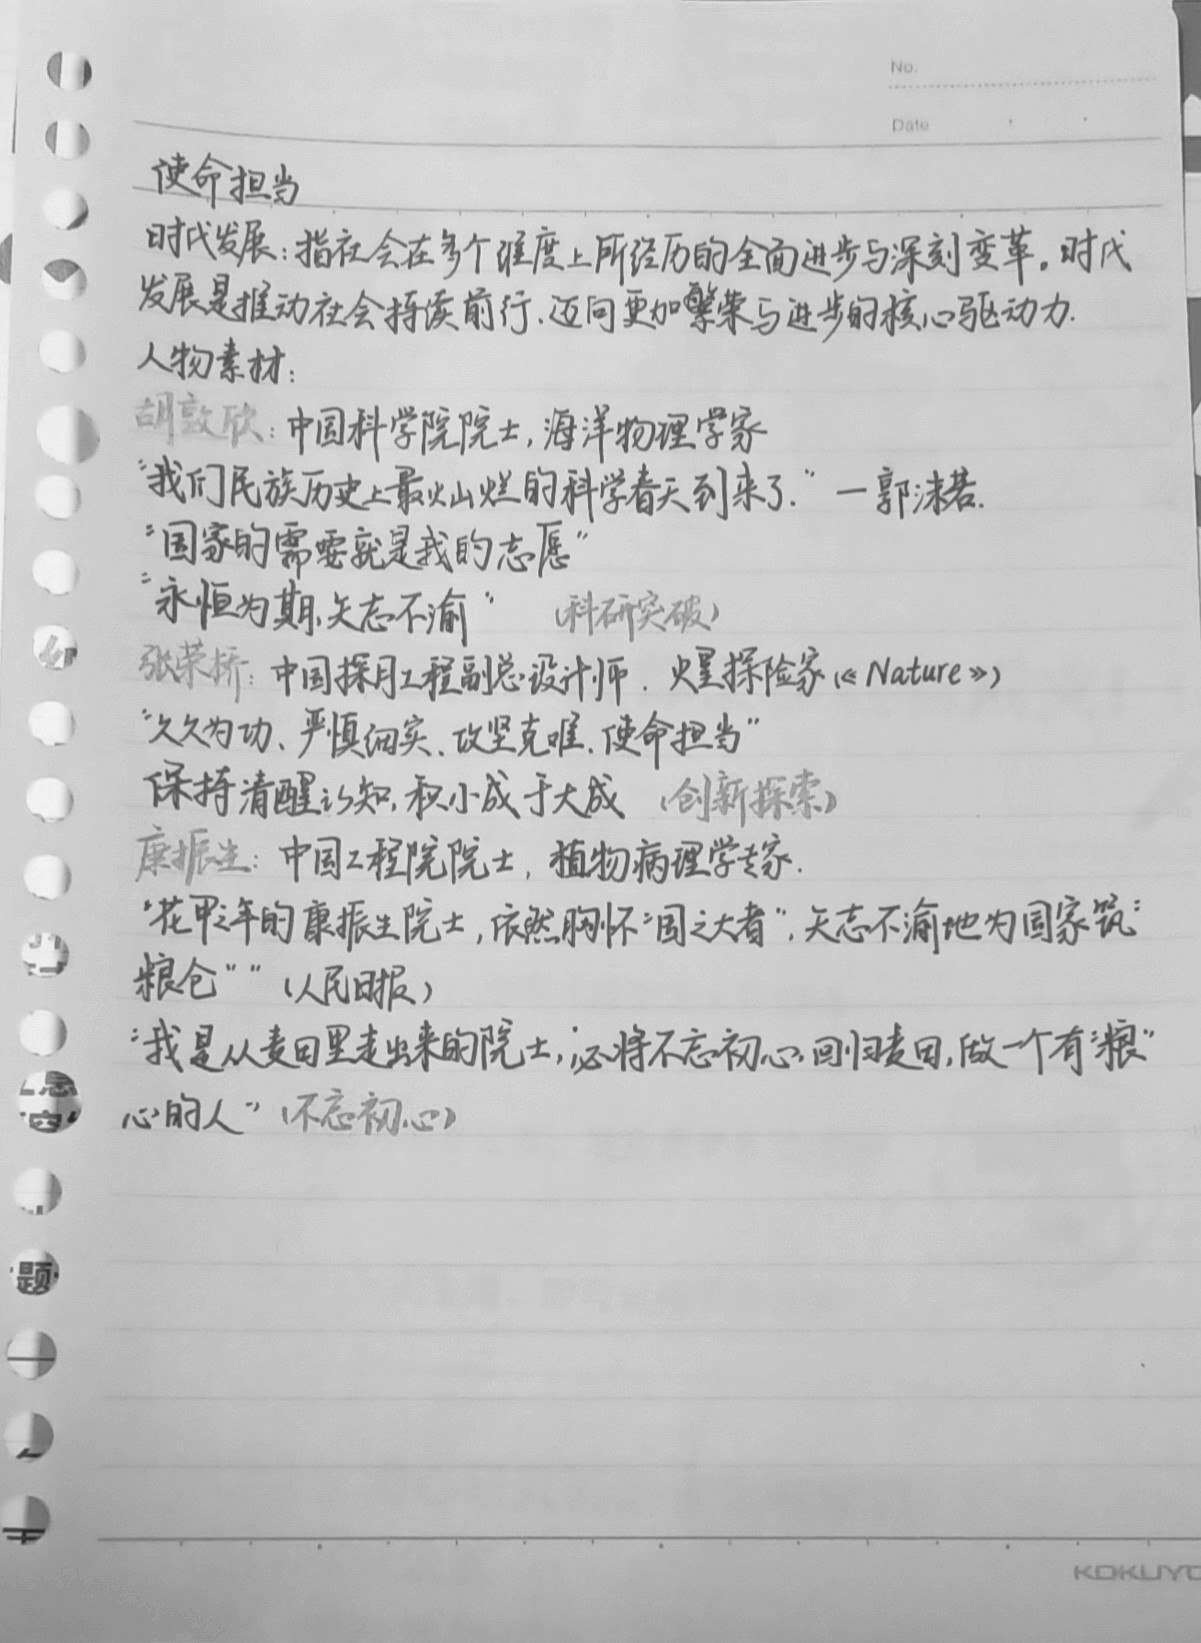 No.
Date
使命担当
时代发展：指社会在多个维度上所经历的全面进步与深刻变革。时代
发展是推动社会持续前行、迈向更加繁荣与进步的核心驱动力.
人物素材：
胡敦欣：中国科学院院士，海洋物理学家
“我们民族历史上最灿烂的科学春天到来了.” —郭沫若.
“国家的需要就是我的志愿”
“永恒为期，矢志不渝” （科研突破）
张荣桥：中国探月工程副总设计师. 火星探险家（《Nature》）
“久久为功、严慎细实、攻坚克难、使命担当”
保持清醒认知，积小成于大成 （创新探索）
康振生：中国工程院院士，植物病理学专家.
“花甲之年的康振生院士，依然胸怀“国之大者”，矢志不渝地为国家筑“
粮仓””（人民日报）
“我是从麦田里走出来的院士，必将不忘初心，回归麦田，做一个有“粮”
心的人”（不忘初心）
题
KOKUYO